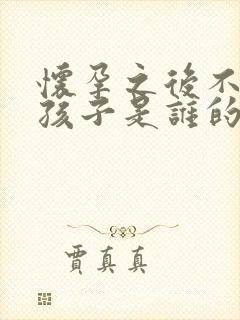 懷孕之後不
孩子是誰的
賈真真